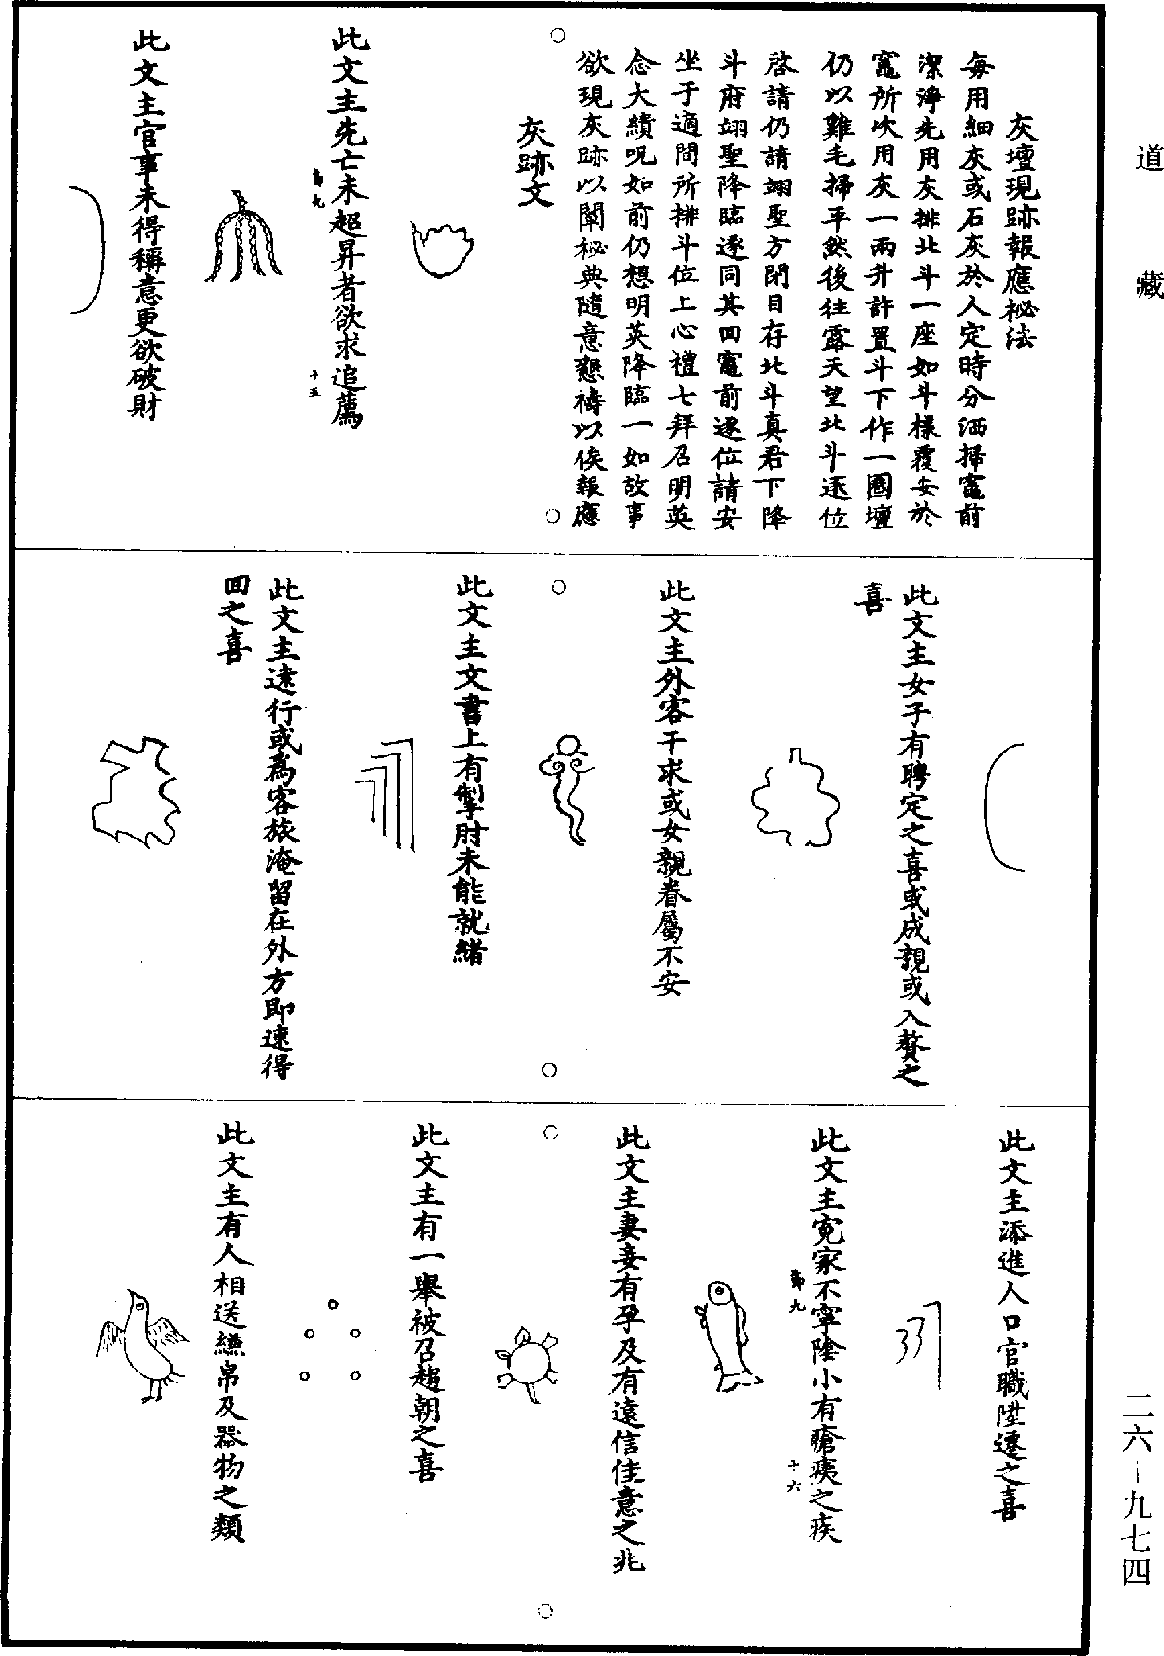 道藏
灰壇現跡報應祕法
每用細灰或石灰於人定時分洒掃竈前
潔淨先用灰排北斗一座如斗樣覆安於
竈所次用灰一兩升許置斗下作一圈壇
仍以雞毛掃平然後往露天望北斗逐位
啓請仍請翊聖方閉目存北斗真君下降
斗府翊聖降臨逐同其回竈前逐位請安
坐于適間所排斗位上心禮七拜召明英
念大績呪如前仍想明英降臨一如故事
欲現灰跡以闡祕典隨意懇禱以俟報應
灰跡文
此文主先亡未超昇者欲求追薦
第九
十五
此文主官事未得稱意更欲破財
此文主女子有聘定之喜或成親或入贅之
喜
此文主外客干求或女親眷屬不安
此文主文書上有掣肘未能就緒
此文主遠行或為客旅淹留在外方即速得
回之喜
此文主添進人口官職陞遷之喜
此文主寃家不寧陰小有瘡痍之疾
第九
十六
此文主妻妾有孕及有遠信佳意之兆
此文主有一舉被召趨朝之喜
此文主有人相送縑帛及器物之類
二六—九七四